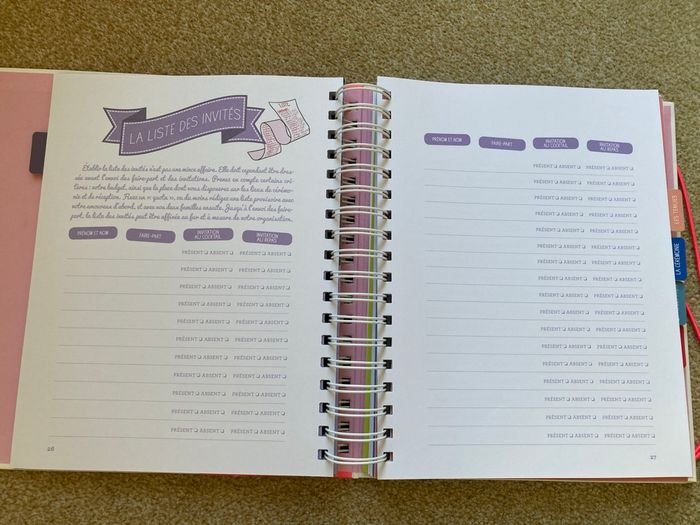 LA LISTE DES INVITÉS
Établir la liste des invités n'est pas une mince affaire. Elle doit cependant être dres-
sée avant l'envoi des faire-part et des invitations. Prenez en compte certains cri-
tères : votre budget, ainsi que la place dont vous disposerez sur les lieux de cérémo-
nie et de réception. Fixez un « quota », ou du moins rédigez une liste provisoire avec
votre amoureux d'abord, et avec vos deux familles ensuite. Jusqu'à l'envoi des faire-
part, la liste des invités peut être affinée au fur et à mesure de votre organisation.
PRÉNOM ET NOM FAIRE-PART INVITATION AU COCKTAIL INVITATION AU REPAS
PRÉSENT ❏ ABSENT ❏ PRÉSENT ❏ ABSENT ❏
PRÉSENT ❏ ABSENT ❏ PRÉSENT ❏ ABSENT ❏
PRÉSENT ❏ ABSENT ❏ PRÉSENT ❏ ABSENT ❏
PRÉSENT ❏ ABSENT ❏ PRÉSENT ❏ ABSENT ❏
PRÉSENT ❏ ABSENT ❏ PRÉSENT ❏ ABSENT ❏
PRÉSENT ❏ ABSENT ❏ PRÉSENT ❏ ABSENT ❏
PRÉSENT ❏ ABSENT ❏ PRÉSENT ❏ ABSENT ❏
PRÉSENT ❏ ABSENT ❏ PRÉSENT ❏ ABSENT ❏
PRÉSENT ❏ ABSENT ❏ PRÉSENT ❏ ABSENT ❏
PRÉSENT ❏ ABSENT ❏ PRÉSENT ❏ ABSENT ❏
PRÉSENT ❏ ABSENT ❏ PRÉSENT ❏ ABSENT ❏
26
PRÉNOM ET NOM FAIRE-PART INVITATION AU COCKTAIL INVITATION AU REPAS
PRÉSENT ❏ ABSENT ❏ PRÉSENT ❏ ABSENT ❏
PRÉSENT ❏ ABSENT ❏ PRÉSENT ❏ ABSENT ❏
PRÉSENT ❏ ABSENT ❏ PRÉSENT ❏ ABSENT ❏
PRÉSENT ❏ ABSENT ❏ PRÉSENT ❏ ABSENT ❏
PRÉSENT ❏ ABSENT ❏ PRÉSENT ❏ ABSENT ❏
PRÉSENT ❏ ABSENT ❏ PRÉSENT ❏ ABSENT ❏
PRÉSENT ❏ ABSENT ❏ PRÉSENT ❏ ABSENT ❏
PRÉSENT ❏ ABSENT ❏ PRÉSENT ❏ ABSENT ❏
PRÉSENT ❏ ABSENT ❏ PRÉSENT ❏ ABSENT ❏
PRÉSENT ❏ ABSENT ❏ PRÉSENT ❏ ABSENT ❏
PRÉSENT ❏ ABSENT ❏ PRÉSENT ❏ ABSENT ❏
PRÉSENT ❏ ABSENT ❏ PRÉSENT ❏ ABSENT ❏
PRÉSENT ❏ ABSENT ❏ PRÉSENT ❏ ABSENT ❏
PRÉSENT ❏ ABSENT ❏ PRÉSENT ❏ ABSENT ❏
PRÉSENT ❏ ABSENT ❏ PRÉSENT ❏ ABSENT ❏
PRÉSENT ❏ ABSENT ❏ PRÉSENT ❏ ABSENT ❏
PRÉSENT ❏ ABSENT ❏ PRÉSENT ❏ ABSENT ❏
27
LES TENUES
LA CÉRÉMONIE